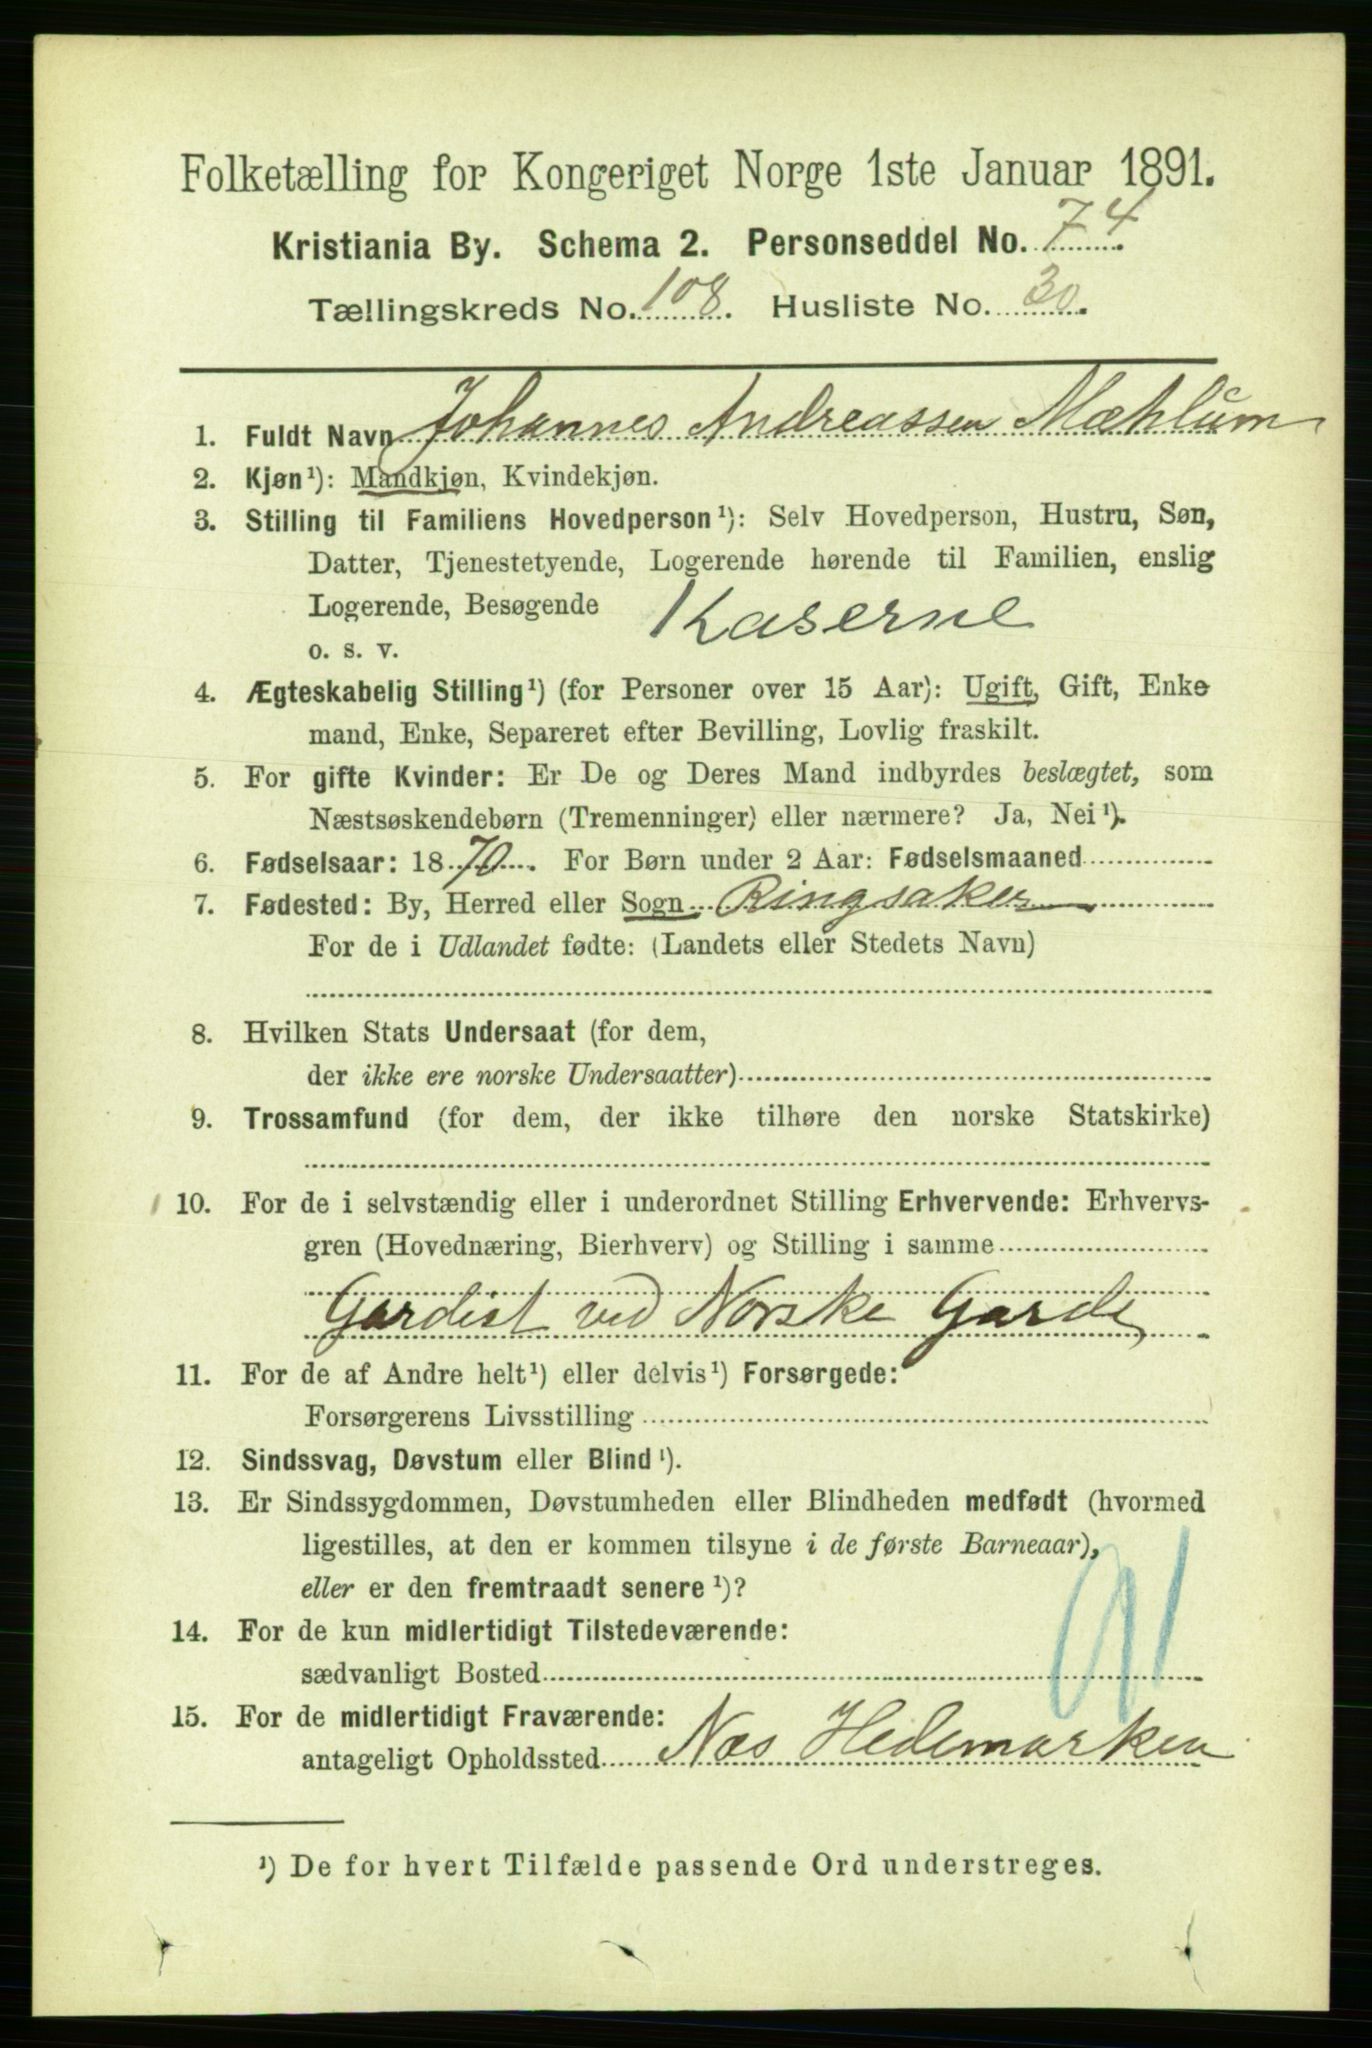 Folketælling for Kongeriget Norge 1ste Januar 1891.
Kristiania By. Schema 2. Personseddel No. 74.
Tællingskreds No. 108. Husliste No. 30.
1. Fuldt Navn Johannes Andreassen Mæhlum
2. Kjøn¹): Mandkjøn, Kvindekjøn.
3. Stilling til Familiens Hovedperson¹): Selv Hovedperson, Hustru, Søn,
Datter, Tjenestetyende, Logerende hørende til Familien, enslig
Logerende, Besøgende Kaserne
o. s. v.
4. Ægteskabelig Stilling¹) (for Personer over 15 Aar): Ugift, Gift, Enke
mand, Enke, Separeret efter Bevilling, Lovlig fraskilt.
5. For gifte Kvinder: Er De og Deres Mand indbyrdes beslægtet, som
Næstsøskendebørn (Tremenninger) eller nærmere? Ja, Nei¹).
6. Fødselsaar: 1870. For Børn under 2 Aar: Fødselsmaaned
7. Fødested: By, Herred eller Sogn Ringsaker
For de i Udlandet fødte: (Landets eller Stedets Navn)
8. Hvilken Stats Undersaat (for dem,
der ikke ere norske Undersaatter)
9. Trossamfund (for dem, der ikke tilhøre den norske Statskirke)
10. For de i selvstændig eller i underordnet Stilling Erhvervende: Erhvervs-
gren (Hovednæring, Bierhverv) og Stilling i samme
Gardist ved Norske Garde
11. For de af Andre helt¹) eller delvis¹) Forsørgede:
Forsørgerens Livsstilling
12. Sindssvag, Døvstum eller Blind¹).
13. Er Sindssygdommen, Døvstumheden eller Blindheden medfødt (hvormed
ligestilles, at den er kommen tilsyne i de første Barneaar),
eller er den fremtraadt senere¹)?
91
14. For de kun midlertidigt Tilstedeværende:
sædvanligt Bosted
15. For de midlertidigt Fraværende:
antageligt Opholdssted Næs Hedemarken
¹) De for hvert Tilfælde passende Ord understreges.